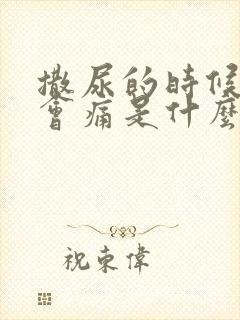 撒尿的時候
會痛是什麼
祝東偉